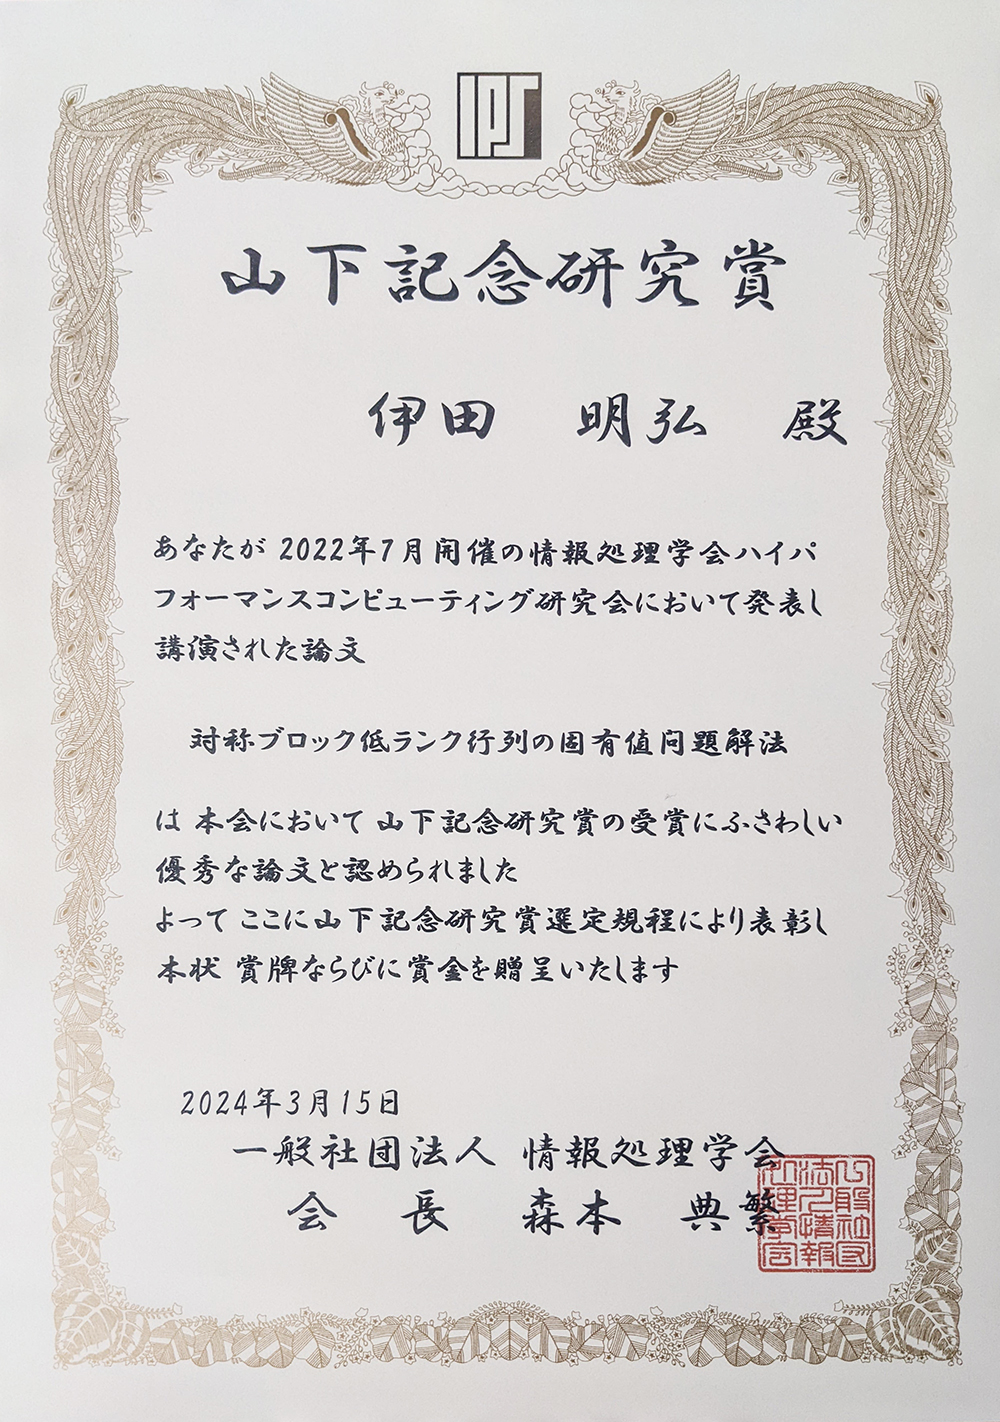 IPSJ
山下記念研究賞
伊田 明弘 殿
あなたが 2022年7月開催の情報処理学会ハイパ
フォーマンスコンピューティング研究会において発表し
講演された論文
対称ブロック低ランク行列の固有値問題解法
は 本会において 山下記念研究賞の受賞にふさわしい
優秀な論文と認められました
よって ここに山下記念研究賞選定規程により表彰し
本状 賞牌ならびに賞金を贈呈いたします
2024年3月15日
一般社団法人 情報処理学会
会 長 森本 典繁